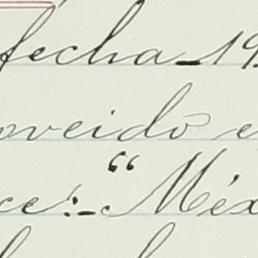 fecha 19
oveido e
ce:-"Méx